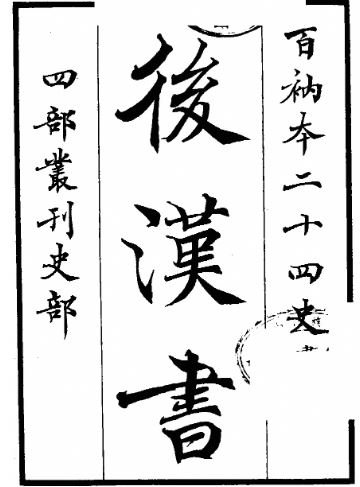 百衲本二十四史
後漢書
四部叢刊史部